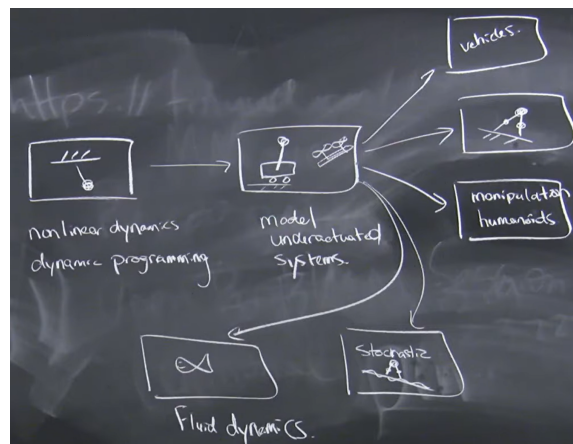 https://
vehicles.
nonlinear dynamics
dynamic programming
model
underactuated
systems.
manipulation
humanoids
stochastic
Fluid dynamics.